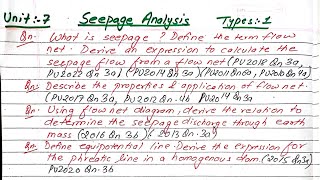 Unit:-7 Seepage Analysis Types:1
Qn:- What is seepage? Define the term flow
net. Derive an expression to calculate the
seepage flow from a flow net (PU2018 Qn 3a,
PU2022 Qn 3a) (PU2014 Qn 3a) (PU2011 Qn 6a, PU2010 Qn 4a)
Qn:- Describe the properties & application of flow net.
(PU2017 Qn 3a, PU2012 Qn. 4b PU2014 Qn 3a
Qn:- Using flow net diagram, derive the relation to
determine the seepage discharge through earth
mass (2016 Qn 3b) (2013 Qn 3a)
Qn:- Define equipotential line. Derive the expression for
the phreatic line in a homogenous dam. (2015 Qn 3a)
PU2020 Qn. 3b